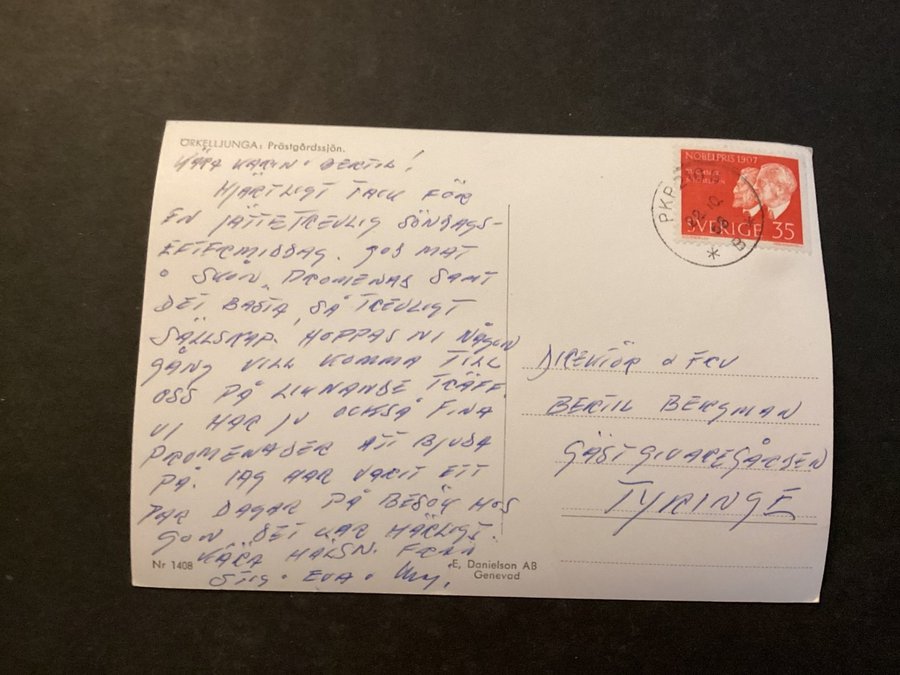 ÖRKELLJUNGA: Prästgårdssjön.
KÄRA KARIN o BERTIL!
HJÄRTLIGT TACK FÖR
EN JÄTTETREVLIG SÖNDAGS-
EFTERMIDDAG. GOD MAT
o SKÖN PROMENAD SAMT
DET BÄSTA, SÅ TREVLIGT
SÄLLSKAP. HOPPAS NI NÅGON
GÅNG VILL KOMMA TILL
OSS PÅ LIKNANDE TRÄFF.
VI HAR JU OCKSÅ FINA
PROMENADER ATT BJUDA
PÅ. JAG HAR VARIT ETT
PAR DAGAR PÅ BESÖK HOS
DET VAR HÄRLIGT.
KÄRA HÄLSN. FRÅN
STIG o EVA o
Nr 1408
E, Danielson AB
Genevad
NOBELPRIS 1907
SVERIGE 35
PKP
DIREKTÖR o FRU
BERTIL BERGMAN
GÄSTGIVAREGÅRDEN
TYRINGE